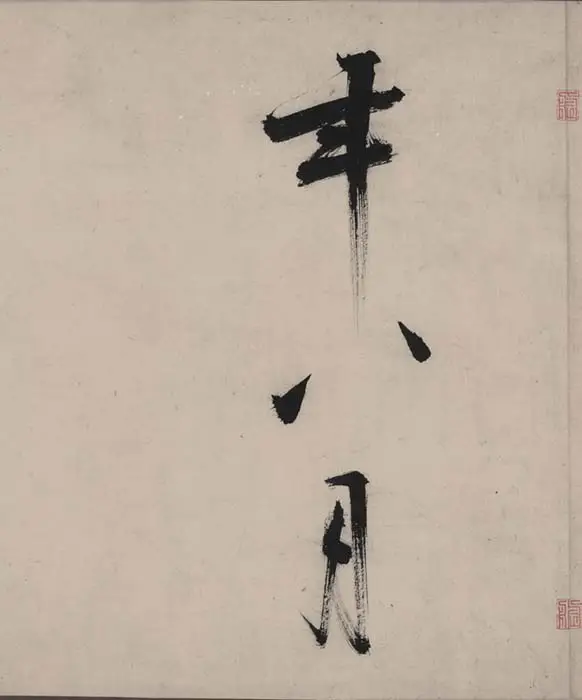 年八月